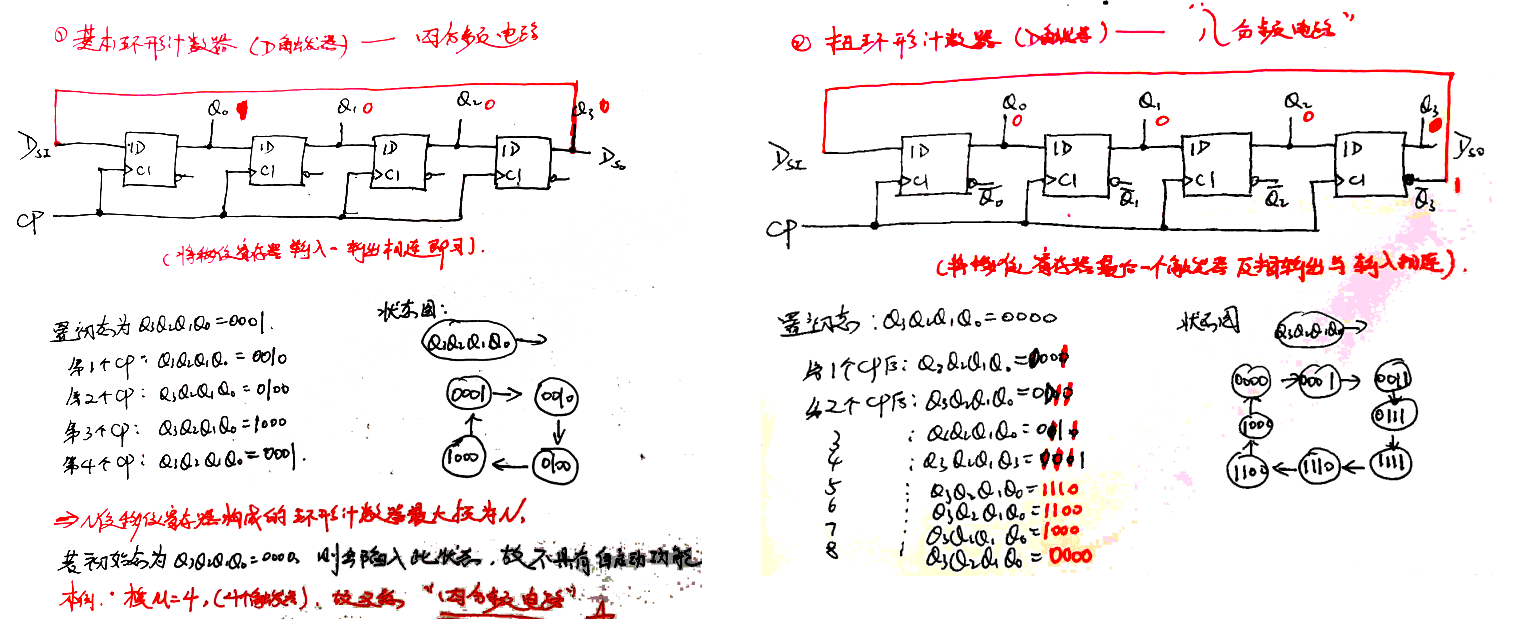 ① 基本环形计数器 (D触发器) — 四分频电路
Q₀ 1 Q₁ 0 Q₂ 0 Q₃ 0
D_SI 1D 1D 1D 1D D_SO
C1 C1 C1 C1
CP
(将移位寄存器输入-输出相连即可).
置初态为 Q₃Q₂Q₁Q₀=0001.
第1个CP: Q₃Q₂Q₁Q₀=0010
第2个CP: Q₃Q₂Q₁Q₀=0100
第3个CP: Q₃Q₂Q₁Q₀=1000
第4个CP: Q₃Q₂Q₁Q₀=0001.
状态图:
Q₃Q₂Q₁Q₀
0001 0010
1000 0100
⇒ N位移位寄存器构成的环形计数器最大模为N,
若初始态为Q₃Q₂Q₁Q₀=0000, 则会陷入此状态, 故不具有自启动功能
本例: 模M=4, (4个触发器), 故又称 "四分频电路"
② 扭环形计数器 (D触发器) — "八分频电路"
Q₀ 0 Q₁ 0 Q₂ 0 Q₃ 0
D_SI 1D 1D 1D 1D D_SO
C1 Q̅₀ C1 Q̅₁ C1 Q̅₂ C1 Q̅₃ 1
CP
(将移位寄存器最后一个触发器反相输出与输入相连).
置初态: Q₃Q₂Q₁Q₀=0000
第1个CP后: Q₃Q₂Q₁Q₀=0001
第2个CP后: Q₃Q₂Q₁Q₀=0011
3 : Q₃Q₂Q₁Q₀=0111
4 : Q₃Q₂Q₁Q₃=1111
5 : Q₃Q₂Q₁Q₀=1110
6 Q₃Q₂Q₁Q₀=1100
7 : Q₃Q₂Q₁Q₀=1000
8 : Q₃Q₂Q₁Q₀=0000
状态图
Q₃Q₂Q₁Q₀
0000 0001 0011
1000 0111
1100 1110 1111